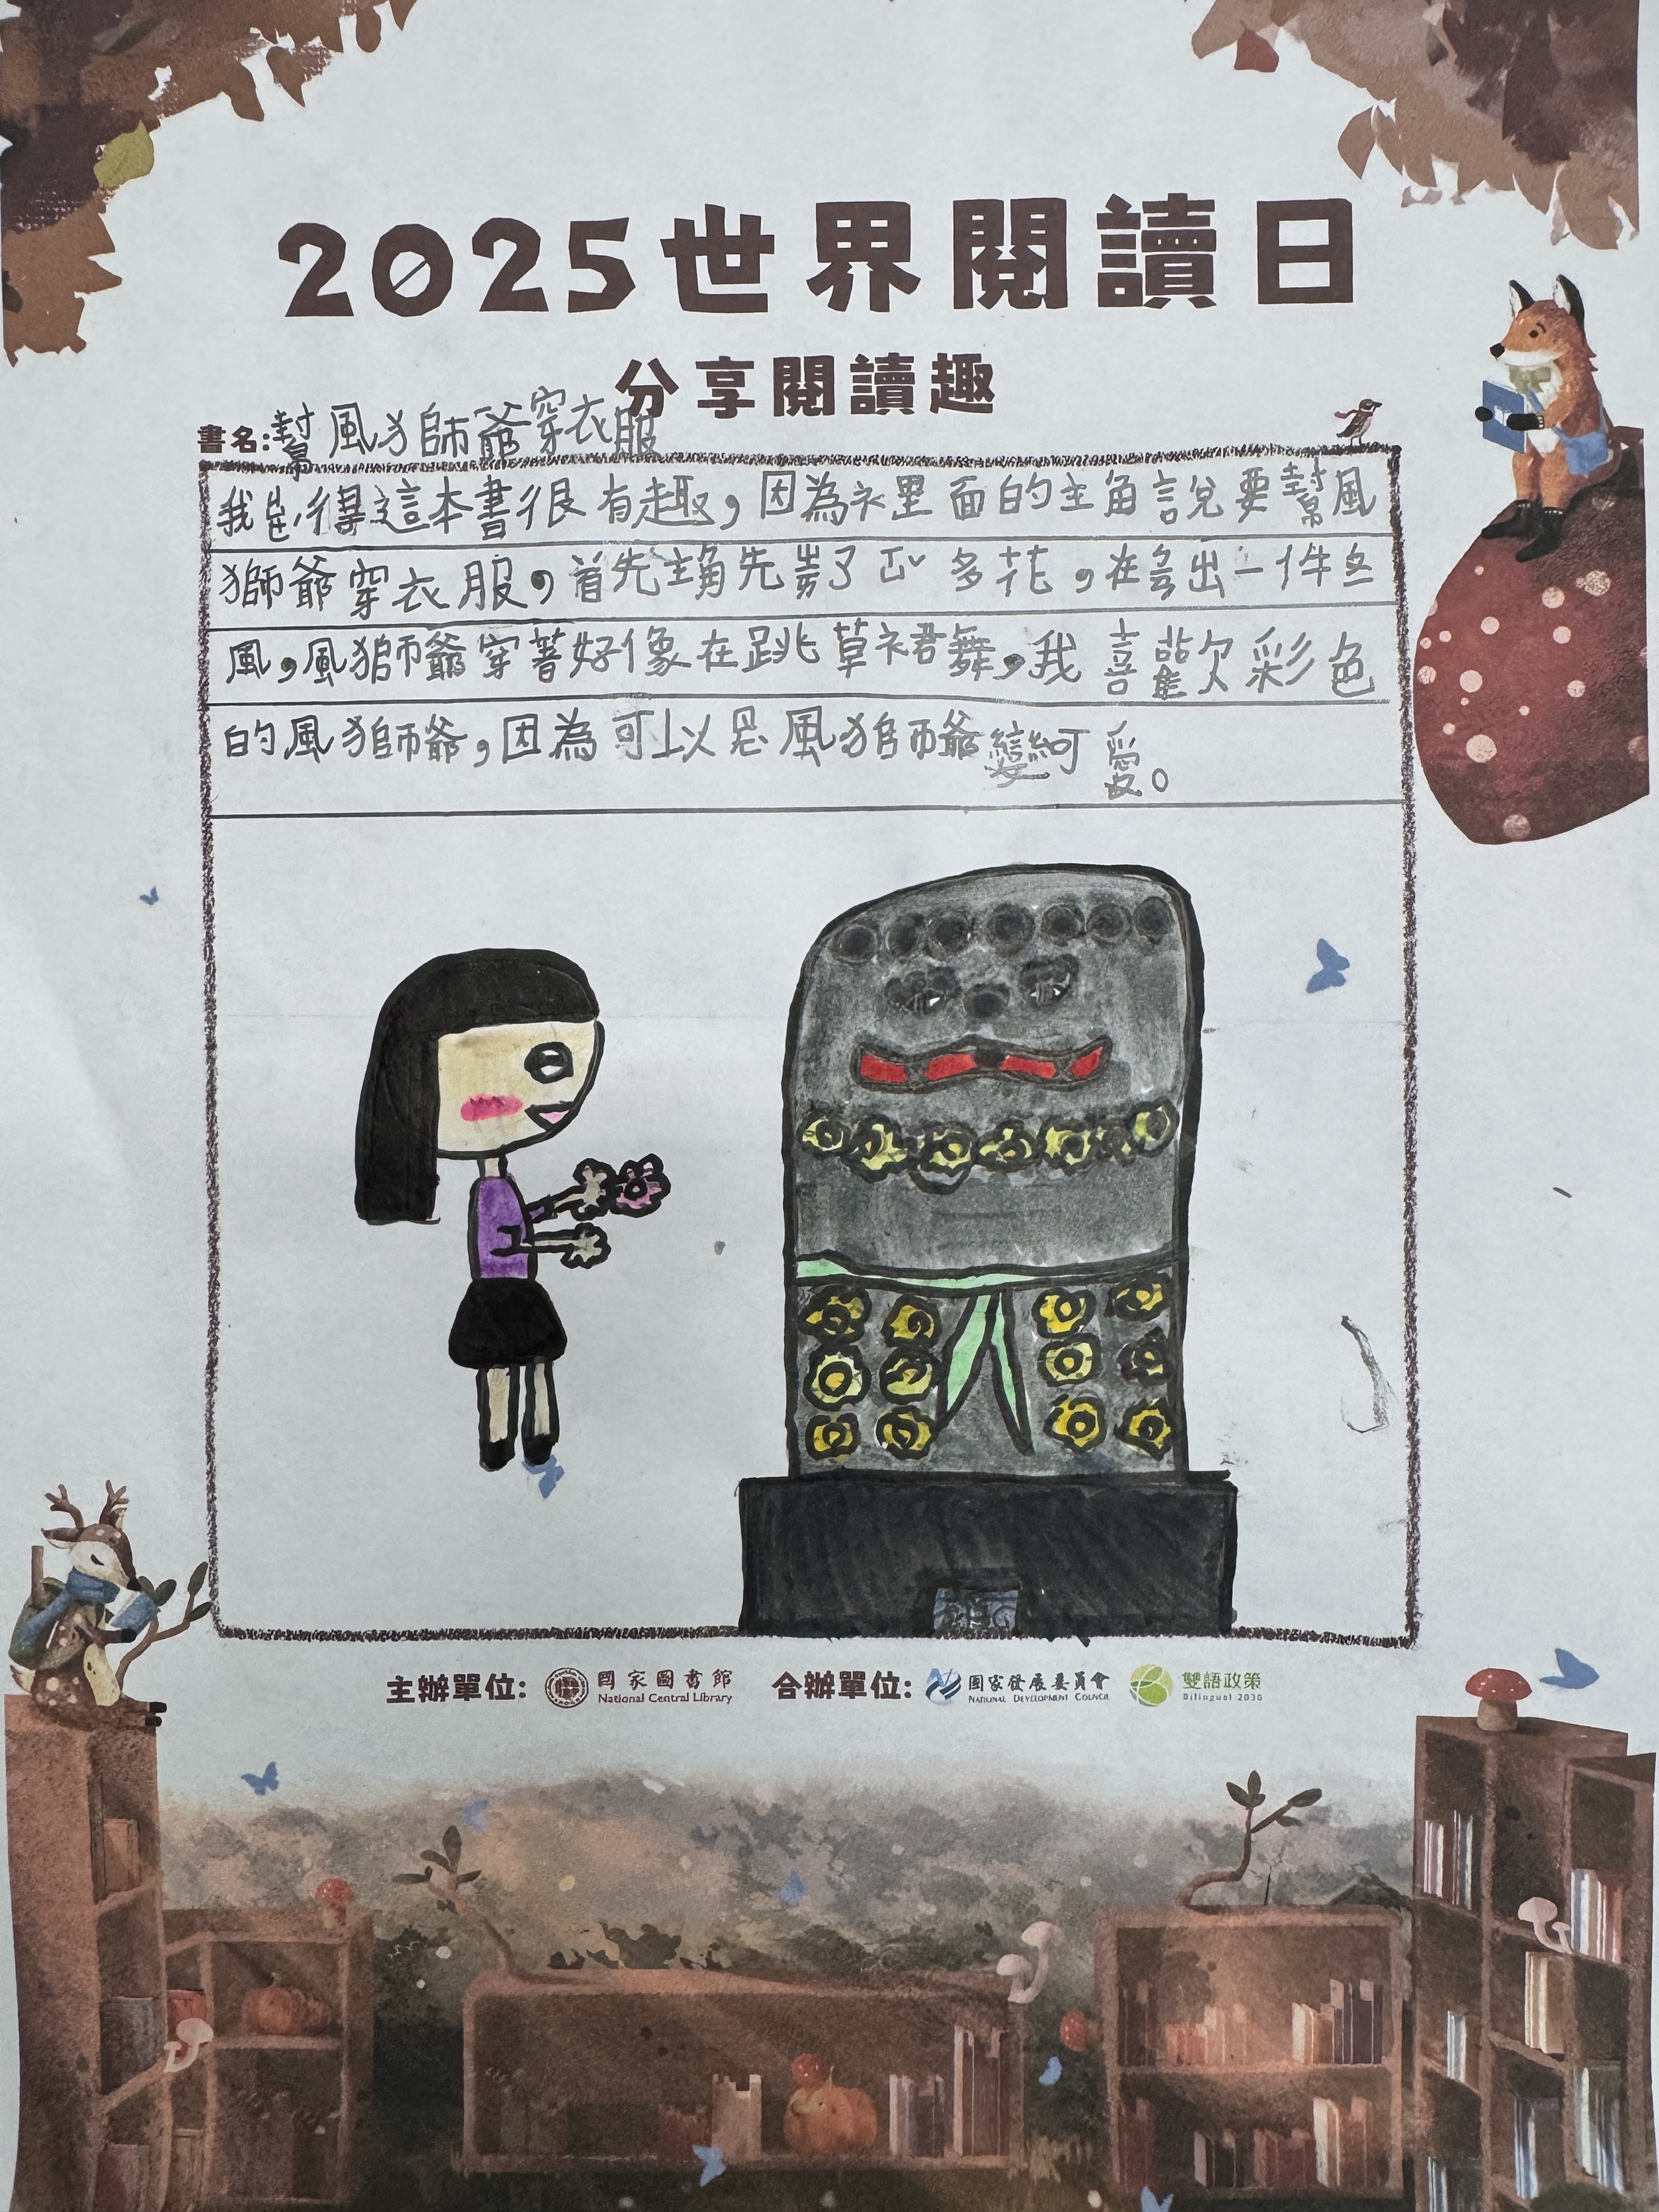 2025世界閱讀日
分享閱讀趣
書名:幫風獅爺穿衣服
我覺得這本書很有趣,因為裡面的主角說要幫風
獅爺穿衣服,首先主角先 了 多花,在 出一件
風,風獅爺穿著好像在跳草裙舞,我喜歡彩色
的風獅爺,因為可以 風獅爺變可愛。
主辦單位: 國家圖書館 National Central Library 合辦單位: 國家發展委員會 NATIONAL DEVELOPMENT COUNCIL 雙語政策 Bilingual 2030